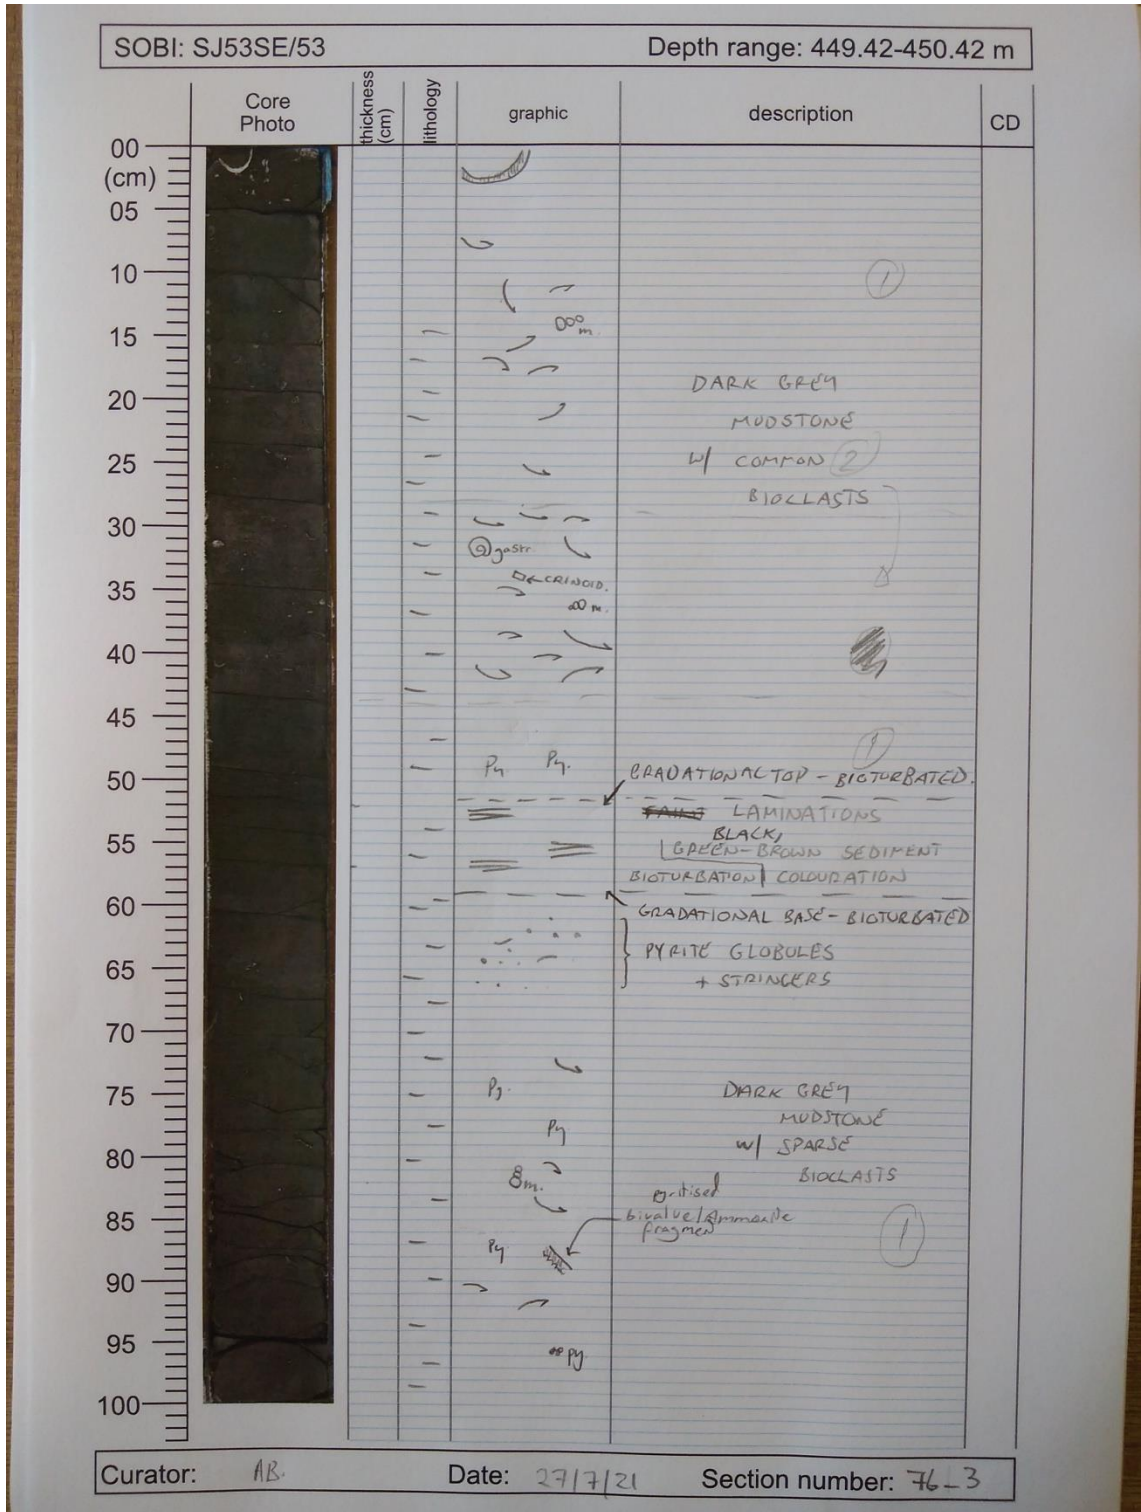 SOBI: SJ53SE/53
Depth range: 449.42-450.42 m
Core Photo
thickness (cm)
lithology
graphic
description
CD
00
(cm)
05
10
15
20
25
30
35
40
45
50
55
60
65
70
75
80
85
90
95
100
1
m.
DARK GREY
MUDSTONE
W/ COMMON 2
BIOCLASTS
gastr.
CRINOID.
m.
1
Py Py.
GRADATIONAL TOP - BIOTURBATED.
LAMINATIONS
BLACK,
GREEN-BROWN SEDIMENT
BIOTURBATION COLOURATION
GRADATIONAL BASE - BIOTURBATED
PYRITE GLOBULES
+ STRINGERS
Py.
DARK GREY
MUDSTONE
Py
W/ SPARSE
BIOCLASTS
m.
pyritised
bivalve/ammonite
fragment
1
Py
Py
Curator: AB.
Date: 27/7/21
Section number: 76-3